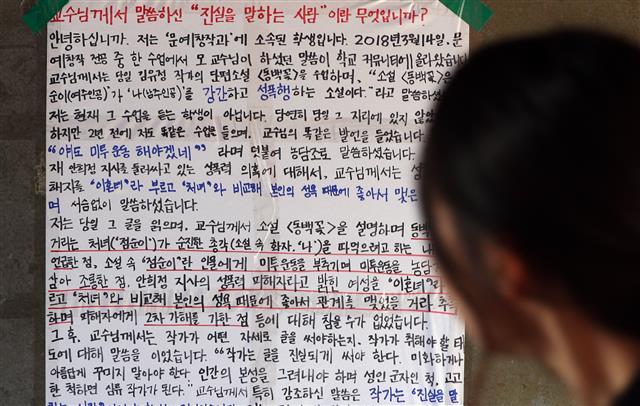 교수님께서 말씀하신 "진실을 말하는 사람"이란 무엇입니까?
안녕하십니까. 저는 '문예창작과'에 소속된 학생입니다. 2018년 3월 14일, 문
예창작 전공 중 한 수업에서 모 교수님이 하셨던 말씀이 학교 커뮤니티에 올라왔습니다
교수님께서는 당일 김유정 작가의 단편소설 <동백꽃>을 수업하며, "소설 <동백꽃>은
순이(여주인공)'가 '나(남주인공)'를 강간하고 성폭행하는 소설이다."라고 말씀하셨
저는 현재 그 수업을 듣는 학생이 아닙니다. 당연히 당일 그 자리에 있지 않았
하지만 2년 전에 저도 똑같은 수업을 들으며, 교수님의 똑같은 발언을 들었습니다.
"얘도 미투 운동 해야겠네" 라며 덧붙여 농담조로 말씀하셨습니다.
재 안희정 지사를 둘러싸고 있는 성폭력 의혹에 대해서, 교수님께서는 성
해자를 "이혼녀"라 부르고 "처녀"와 비교해 본인의 성욕 때문에 좋아서 맺은
며 서슴없이 말씀하셨습니다.
저는 당일 그 글을 읽으며, 교수님께서 소설 <동백꽃>을 설명하며 동백
거리는 처녀("점순이")가 순진한 총각(소설 속 화자, '나')을 따먹으려고 하는 내
언급한 점, 소설 속 "점순이"란 인물에게 미투운동을 부추기며 미투운동을 농담
삼아 조롱한 점, 안희정 지사의 성폭력 피해자라고 밝힌 여성을 "이혼녀"라
르고 "처녀"와 비교해 본인의 성욕 때문에 좋아서 관계를 맺었을 거라 추
하며 피해자에게 2차 가해를 가한 점 등에 대해 참을 수가 없었습니다.
그 후, 교수님께서는 작가가 어떤 자세로 글을 써야하는지, 작가가 취해야 할 태
도에 대해 말씀을 이었습니다. "작가는 글을 진실되게 써야 한다. 미화하거나
아름답게 꾸미지 말아야 한다. 인간의 본성을 그려내야 하며 성인 군자인 척, 고고
한 척하면 심류 작가가 된다." 교수님께서 특히 강조하신 말씀은 작가는 "진실을 말